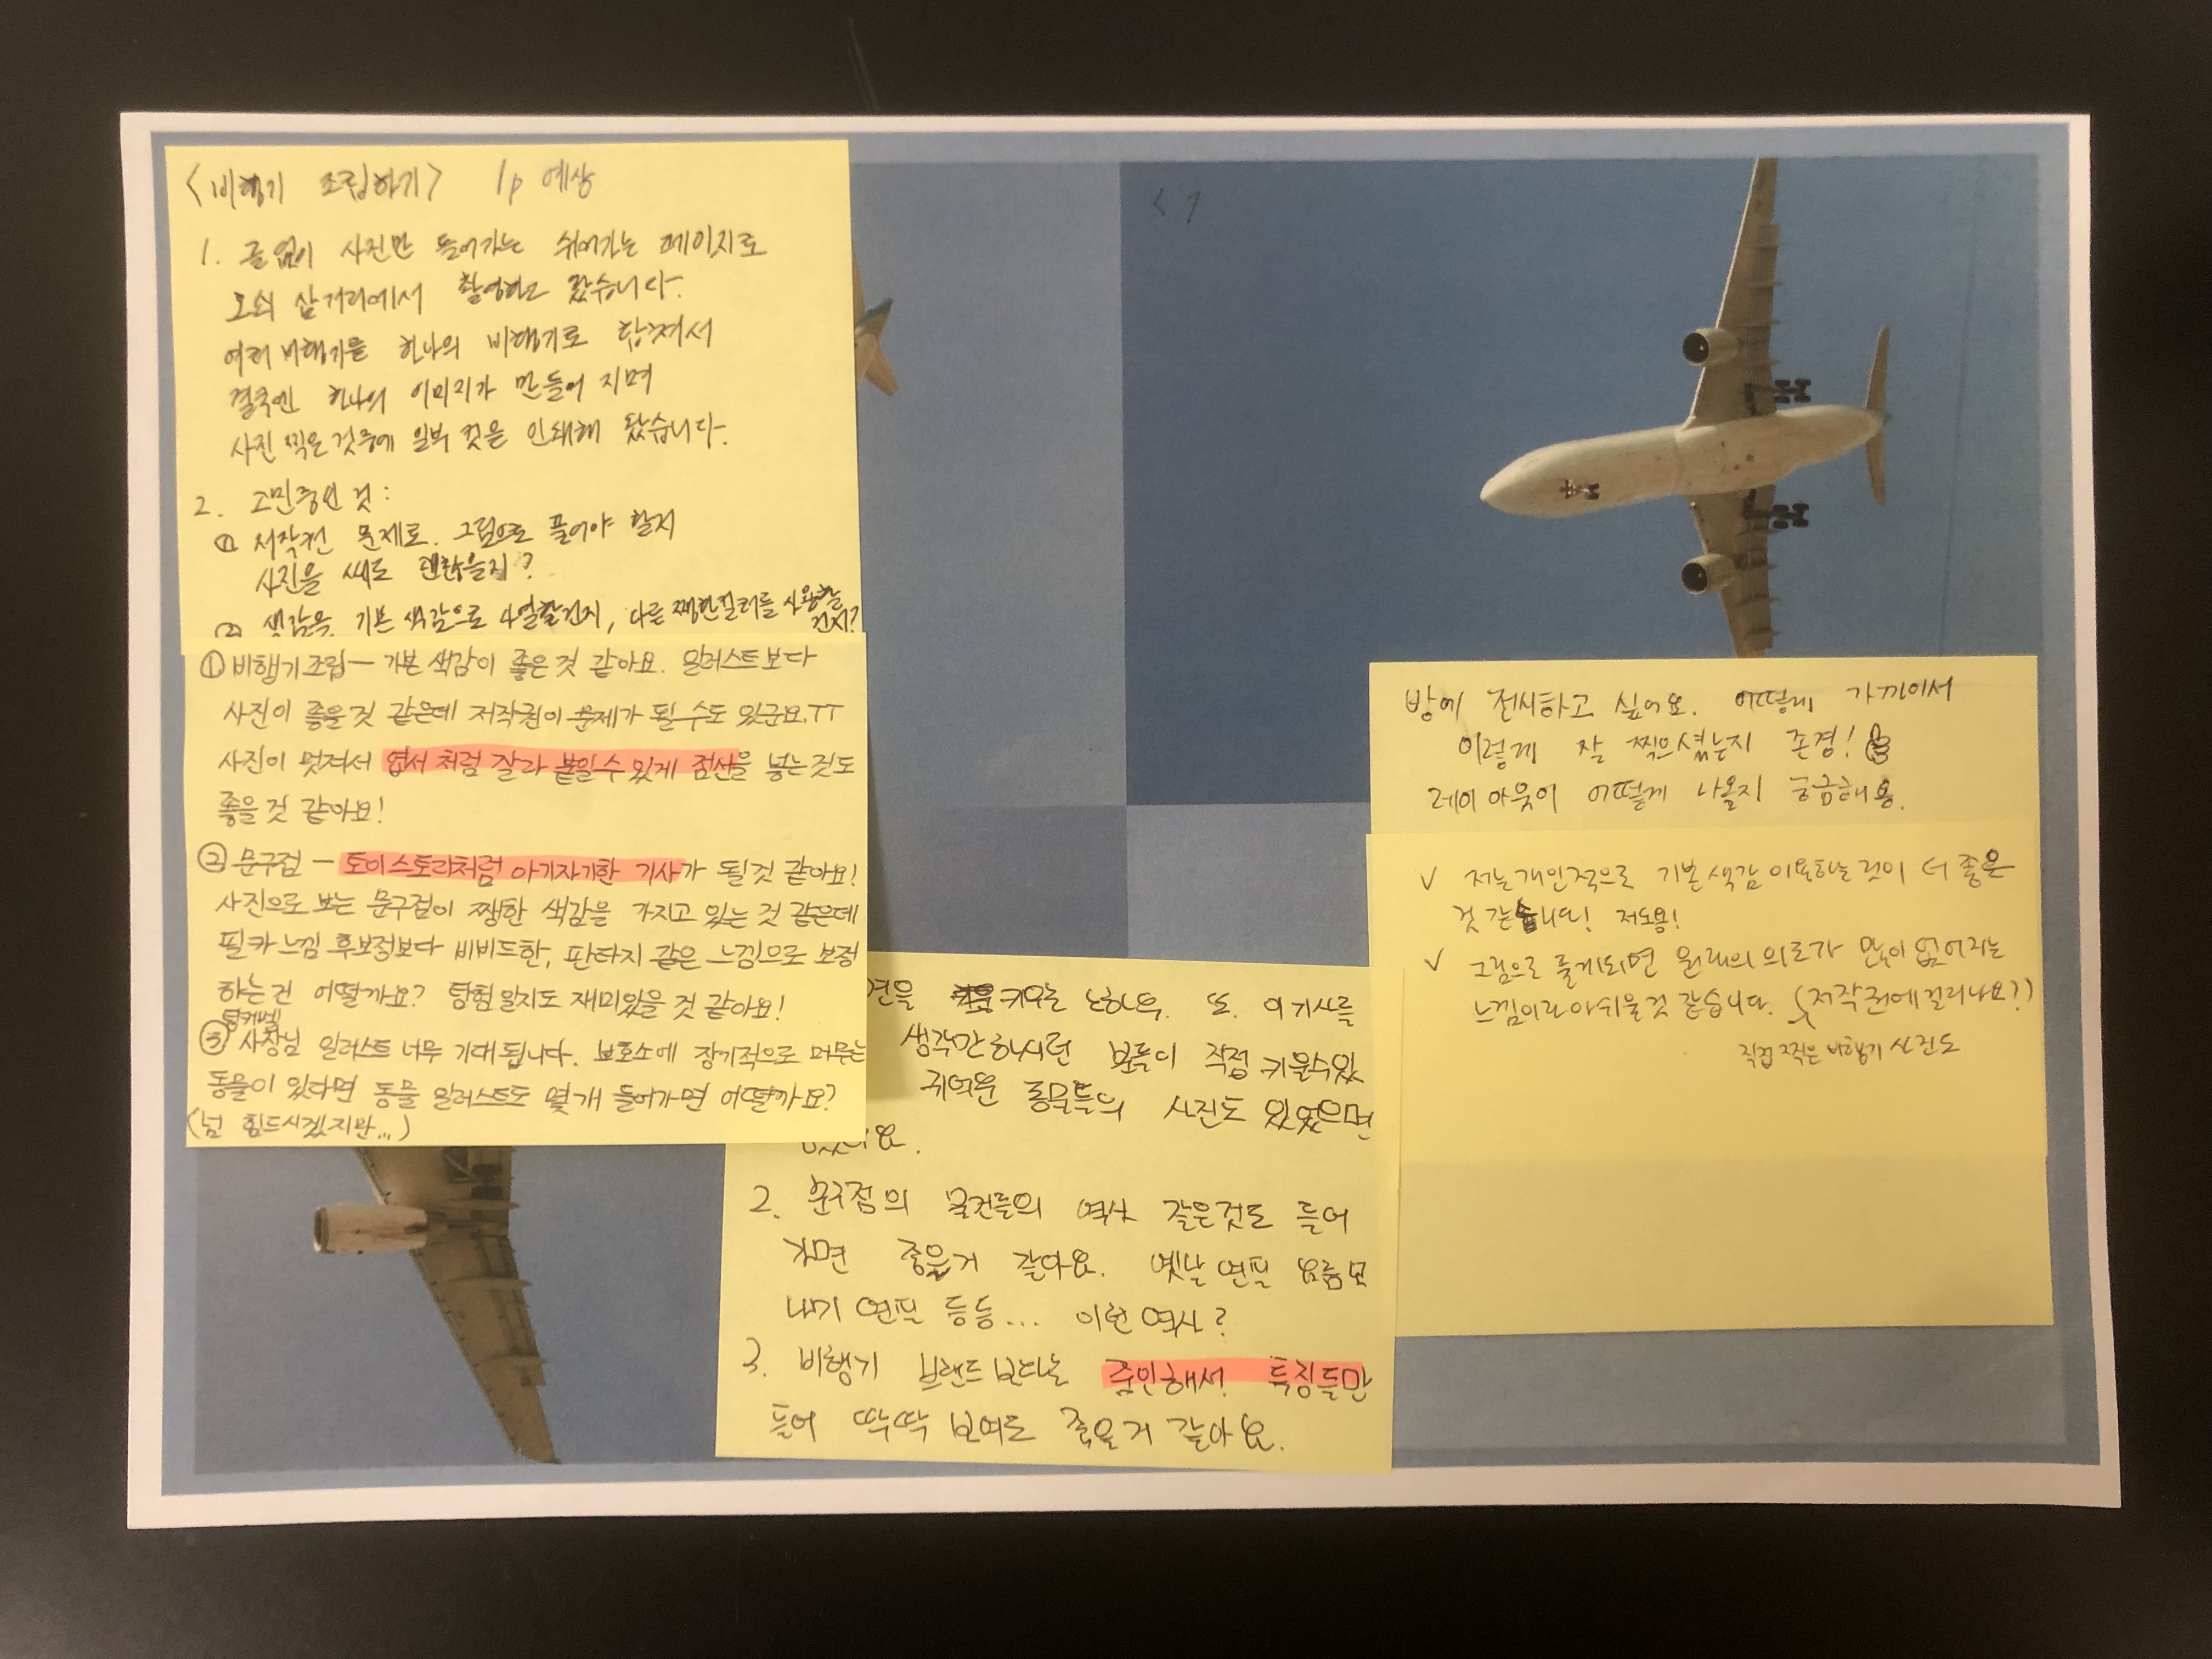 <비행기 조립하기> 1p 예상
1. 글 없이 사진만 들어가는 쉬어가는 페이지로
오쇠 삼거리에서 촬영하고 왔습니다.
여러 비행기를 하나의 비행기로 합쳐서
결국엔 하나의 이미지가 만들어 지며
사진 찍은 것중에 일부 컷을 인쇄해 왔습니다.
2. 고민중인 것:
① 저작권 문제로. 그림으로 풀어야 할지
사진을 써도 괜찮을지?
② 색감을. 기본 색감으로 나열할건지, 다른 쨍한컬러를 사용할
건지?
① 비행기조립 — 기본 색감이 좋은 것 같아요. 일러스트보다
사진이 좋을 것 같은데 저작권이 문제가 될 수도 있군요.ㅠㅠ
사진이 멋져서 엽서 처럼 잘라 붙일수 있게 점선을 넣는 것도
좋을 것 같아요!
② 문구점 — 토이스토리처럼 아기자기한 기사가 될것 같아요!
사진으로 보는 문구점이 쨍한 색감을 가지고 있는 것 같은데
필카 느낌 후보정보다 비비드한, 판타지 같은 느낌으로 보정
하는건 어떨까요? 탐험일지도 재미있을 것 같아요!
③ 사장님 일러스트 너무 기대됩니다. 보호소에 장기적으로 머무는
동물이 있다면 동물 일러스트도 몇개 들어가면 어떨까요?
(넘 힘드시겠지만...)
<1
방에 전시하고 싶어요. 어떻게 가까이서
이렇게 잘 찍으셨는지 존경!
레이아웃이 어떻게 나올지 궁금해용.
✓ 저는개인적으로 기본색감 이용하는것이 더 좋은
것 같습니다! 저도용!
✓ 그림으로 풀게되면 원래의 의도가 많이 없어지는
느낌이라 아쉬울것 같습니다. (저작권에걸리나요?)
직접 찍은 비행기 사진도
견을 키우는 노하우. 또. 이기사를
생각만하시던 분들이 직접 키울수있
귀여운 동물들의 사진도 있었으면
2. 문구점의 물건들의 역사 같은것도 들어
가면 좋을거 같아요. 옛날 연필 요즘모
내기 연필 등등... 이런 역사?
3. 비행기 브랜드보다는 줌인해서 특징들만
들어 딱딱 보여도 좋을거 같아요.